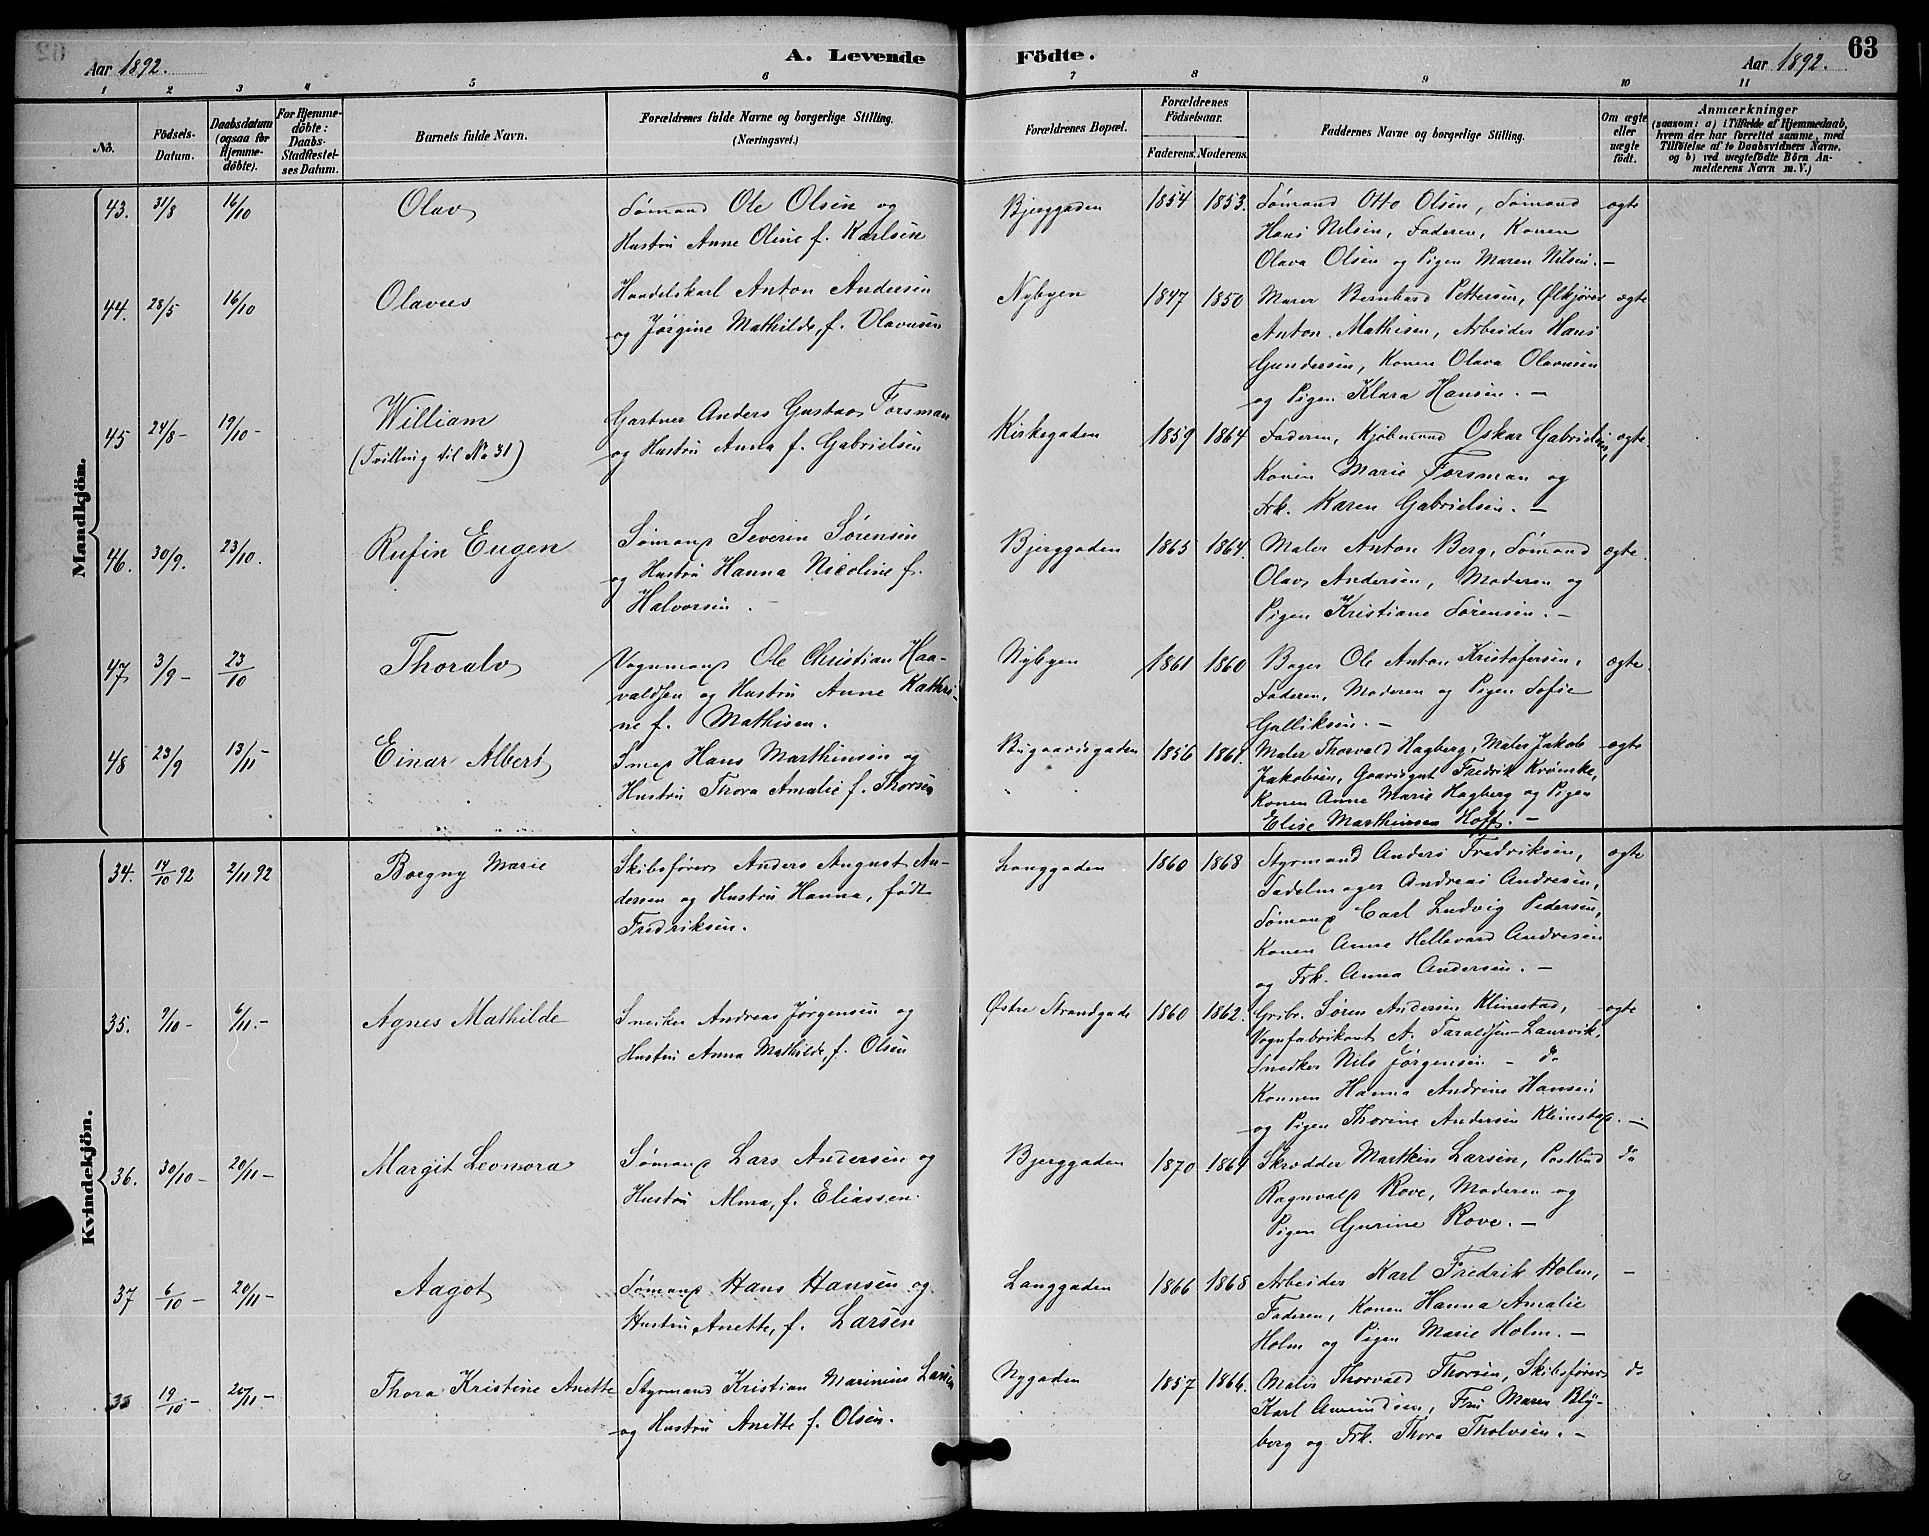 Aar 1892.
A. Levende Födte.
Aar 1892.
63
1 2 3 4 5 6 7 8 9 10 11
No.
Födsels-Datum.
Daabsdatum (ogsaa for Hjemme-döbte).
For Hjemme-döbte: Daabs-Stadfæstel-ses Datum.
Barnets fulde Navn.
Forældrenes fulde Navne og borgerlige Stilling.
(Næringsvei.)
Forældrenes Bopæl.
Forældrenes Födselsaar.
Faderens. Moderens.
Faddernes Navne og borgerlige Stilling.
Om ægte eller uægte födt.
Anmærkninger
(saasom: a) i Tilfælde af Hjemmedaab,
hvem der har forrettet samme, med
Tilföielse af to Daabsvidners Navne.
og b) ved uægtefödte Börn An-
melderens Navn m. V.)
Mandkjön.
43. 31/8 16/10 Olav Sømand Ole Olsen og Bjerggaden 1854 1853. Sømand Otto Olsen, Sømand ægte
Hustru Anne Oline f. Karlsen Hans Nilsen, Faderen, Konen
Olava Olsen og Pigen Maren Nilsen. —
44. 28/5 16/10 Olavus Handelskarl Anton Andersen Nybyen 1847 1850 Murer Bernhard Pettersen, Ølkjører ægte
og Jørgine Mathilde, f. Olavusen Anton Mathisen, Arbeider Hans
Gundersen, Konen Olava Olavusen
og Pigen Klara Hansen. —
45 24/8 - 19/10 - William Gartner Anders Gustav Forsman Kirkegaden 1859 1864 Faderen, Kjøbmand Oskar Gabrielsen, ægte.
(Tvilling til No 31) og Hustru Anna f. Gabrielsen Konen Marie Forsman og
Frk. Karen Gabrielsen. —
46. 30/9. 23/10. Rufin Eugen Sømand Severin Sørensen Bjerggaden 1865 1864. Maler Anton Berg, Sømand ægte.
og Hustru Hanna Nicoline f. Olav Andersen, Moderen og
Halvorsen. Pigen Kristiane Sørensen. —
47 3/9 - 23/10 Thoralv Vognmand Ole Christian Haa- Nybyen 1861 1860 Bager Ole Anton Kristofersen, ægte
valdsen og Hustru Anne Kathri- Faderen, Moderen og Pigen Sofie
ne f. Mathisen. Gulliksen. —
48 23/9 13/11 - Einar Albert Smed Hans Marthinsen og Bigaardsgaden 1856 1861. Maler Thorvald Hagberg, Maler Jakob ægte
Hustru Thora Amalie f. Thorsen Jakobsen, Gaardsgut Fredrik Krønske,
Konen Anne Marie Hagberg og Pigen
Elise Marthinsen Hoff. —
Kvindekjön.
34. 14/10 92 2/11 92 Borgny Marie Skibsfører Anders August An- Langgaden 1860 1868 Styrmand Anders Fredriksen, ægte
dersen og Hustru Hanna, født Sadelmager Andreas Andresen,
Fredriksen. Sømand Carl Ludvig Pedersen,
Konen Anne Hellevard Andresen
og Frk. Anna Andersen. —
35. 9/10 - 6/11. - Agnes Mathilde Snedker Andreas Jørgensen og Østre Strandgade 1860 1862. Grbr. Søren Andersen Klinestad, ægte
Hustru Anna Mathilde, f. Olsen Vognfabrikant A. Taraldsen - Laurvik,
Snedker Nils Jørgensen - do
Konnen Hanna Andrine Hansen
og Pigen Thorine Andersen Klinestad. —
36. 30/10 - 20/11 - Margit Leonora Sømand Lars Andersen og Bjerggaden 1870 1864 Skrædder Marthin Larsen, Postbud do
Hustru Alma, f. Eliassen. Ragnvald Rove, Moderen og
Pigen Gurine Rove. —
37 6/10 - 20/11 - Aagot Sømand Hans Hansen og Langgaden 1866 1868 Arbeider Karl Fredrik Holm, —
Hustru Anette, f. Larsen Faderen, Konen Hanna Amalie
Holm og Pigen Marie Holm. —
38 19/10 - 20/11 - Thora Kristine Anette Styrmand Kristian Marinius Larsen Nygaden 1857 1866. Maler Thorvald Thorsen, Skibsfører do
og Hustru Anette f. Olsen. Karl Amundsen, Fru Maren Bly-
berg og Frk. Thora Tholvsen. —